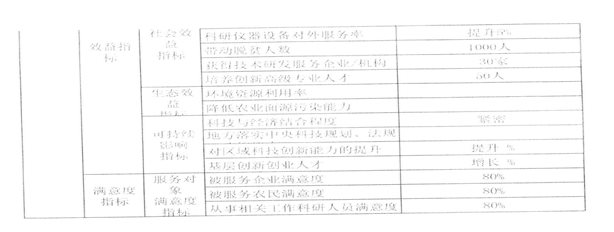 效益指标
社会效益指标
科研仪器设备对外服务率 提升%
带动脱贫人数 1000人
获得技术研发服务企业/机构 30家
培养创新高级专业人才 50人
生态效益指标
环境资源利用率
降低农业面源污染能力
可持续影响指标
科技与经济结合程度 紧密
地方落实中央科技规划、法规
对区域科技创新能力的提升 提升 %
基层创新创业人才 增长 %
满意度指标
服务对象满意度指标
被服务企业满意度 80%
被服务农民满意度 80%
从事相关工作科研人员满意度 80%